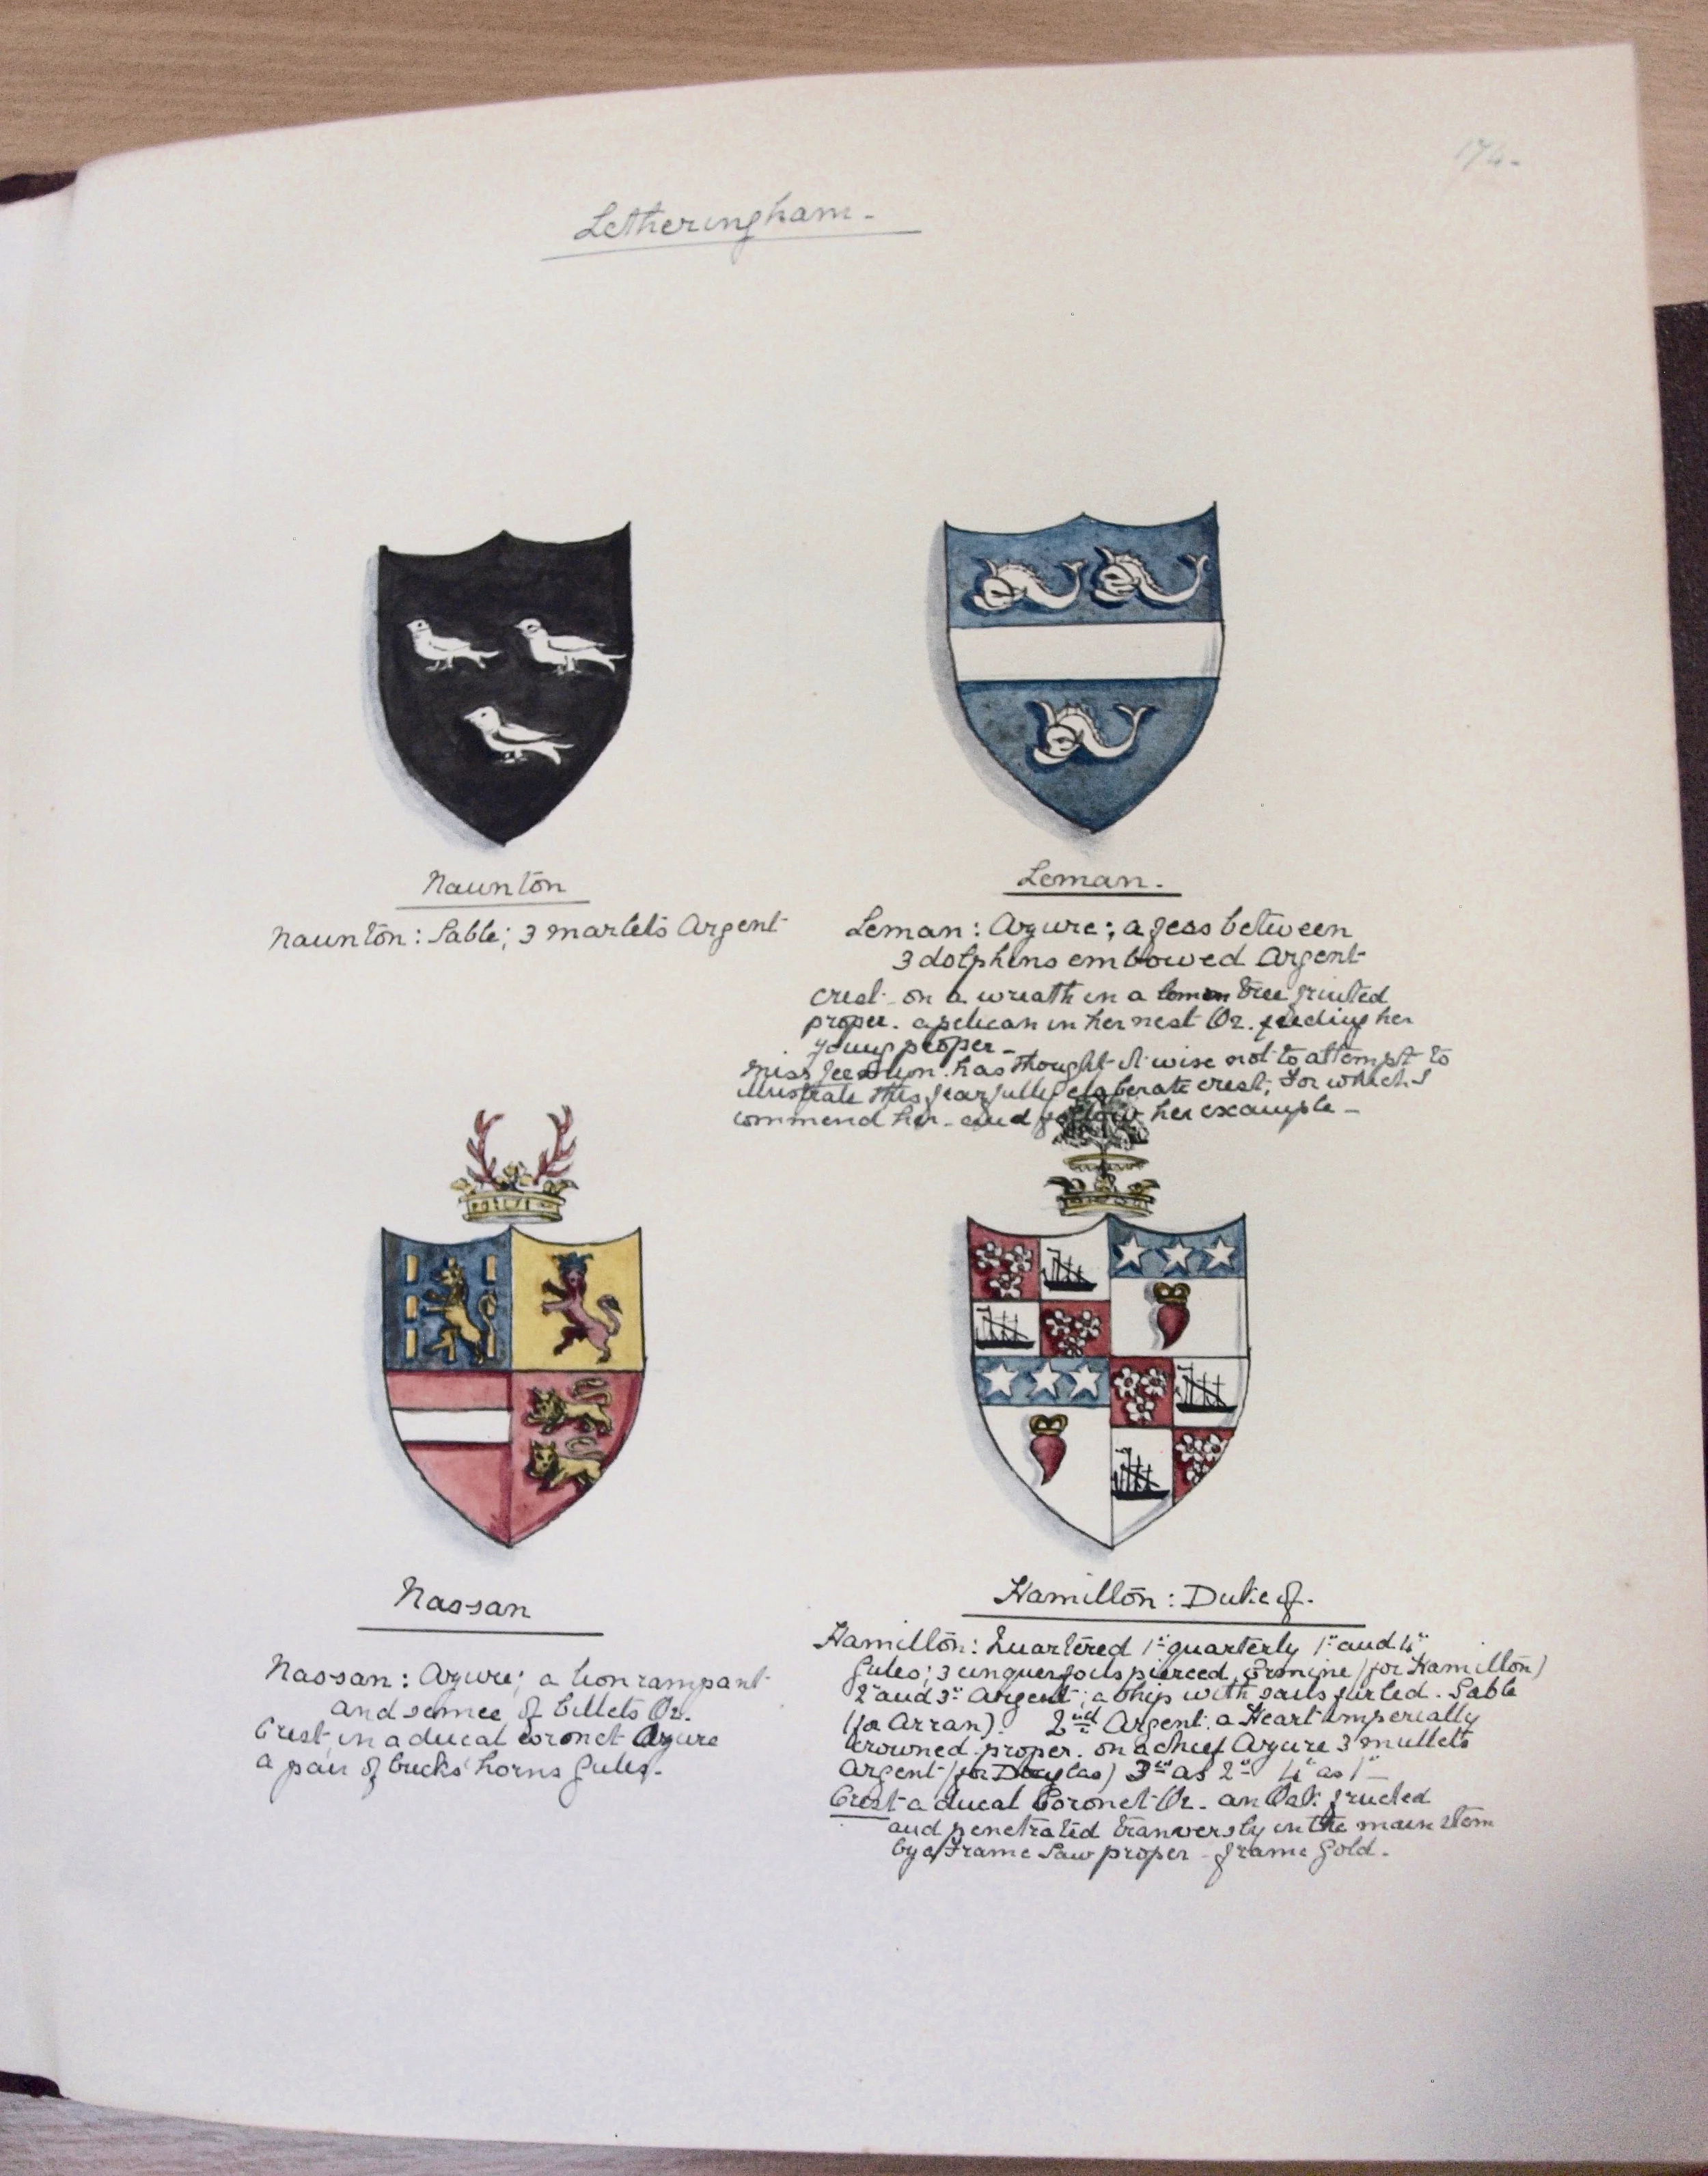 174.
Letheringham.
Naunton
Naunton: Sable; 3 martlets Argent
Leman.
Leman: Azure; a fess between
3 dolphins embowed Argent
Crest - on a wreath in a lemon tree fruited
proper. a pelican in her nest Or. feeding her
young proper -
Miss has thought it wise not to attempt to
illustrate this fearfully elaborate crest, for which I
commend her - and follow her example -
Nassan
Nassan: Azure; a lion rampant
and semee of billets Or.
Crest, in a ducal coronet Azure
a pair of bucks' horns Gules.
Hamilton: Duke of.
Hamilton: Quartered 1st quarterly 1st and 4th
Gules; 3 cinquefoils pierced Ermine (for Hamilton)
2nd and 3rd Argent; a ship with sails furled. Sable
(for Arran). 2nd Argent. a Heart imperially
crowned proper. on a chief Azure 3 mullets
Argent (for Douglas) 3rd as 2nd 4th as 1st -
Crest a ducal Coronet Or. an Oak fructed
and penetrated tranversly in the main stem
by a Frame Saw proper - frame Gold.